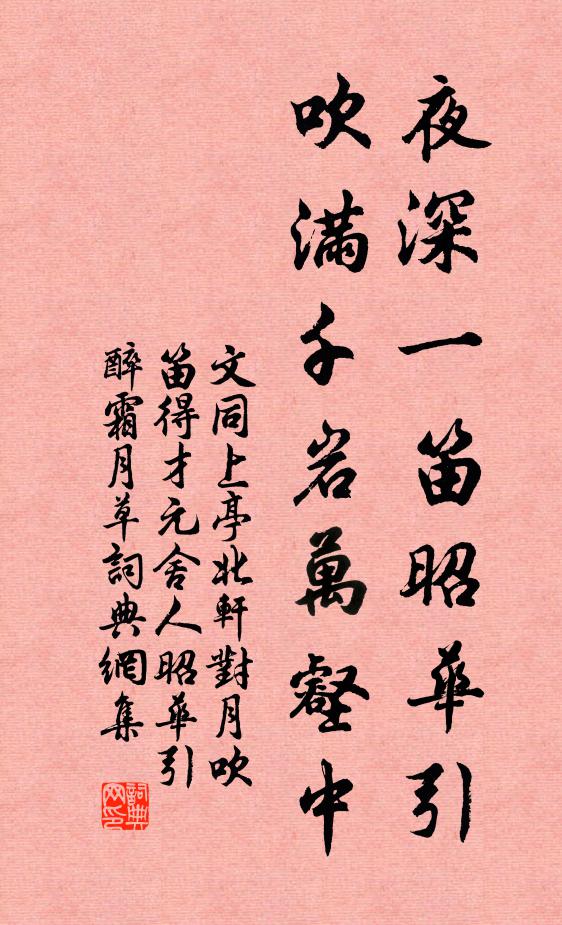 夜深一笛昭華引
吹滿千岩萬壑中
文同上亭北軒對月吹
笛得才元舍人昭華引
醉霜月草詞典網集
詞典
网印